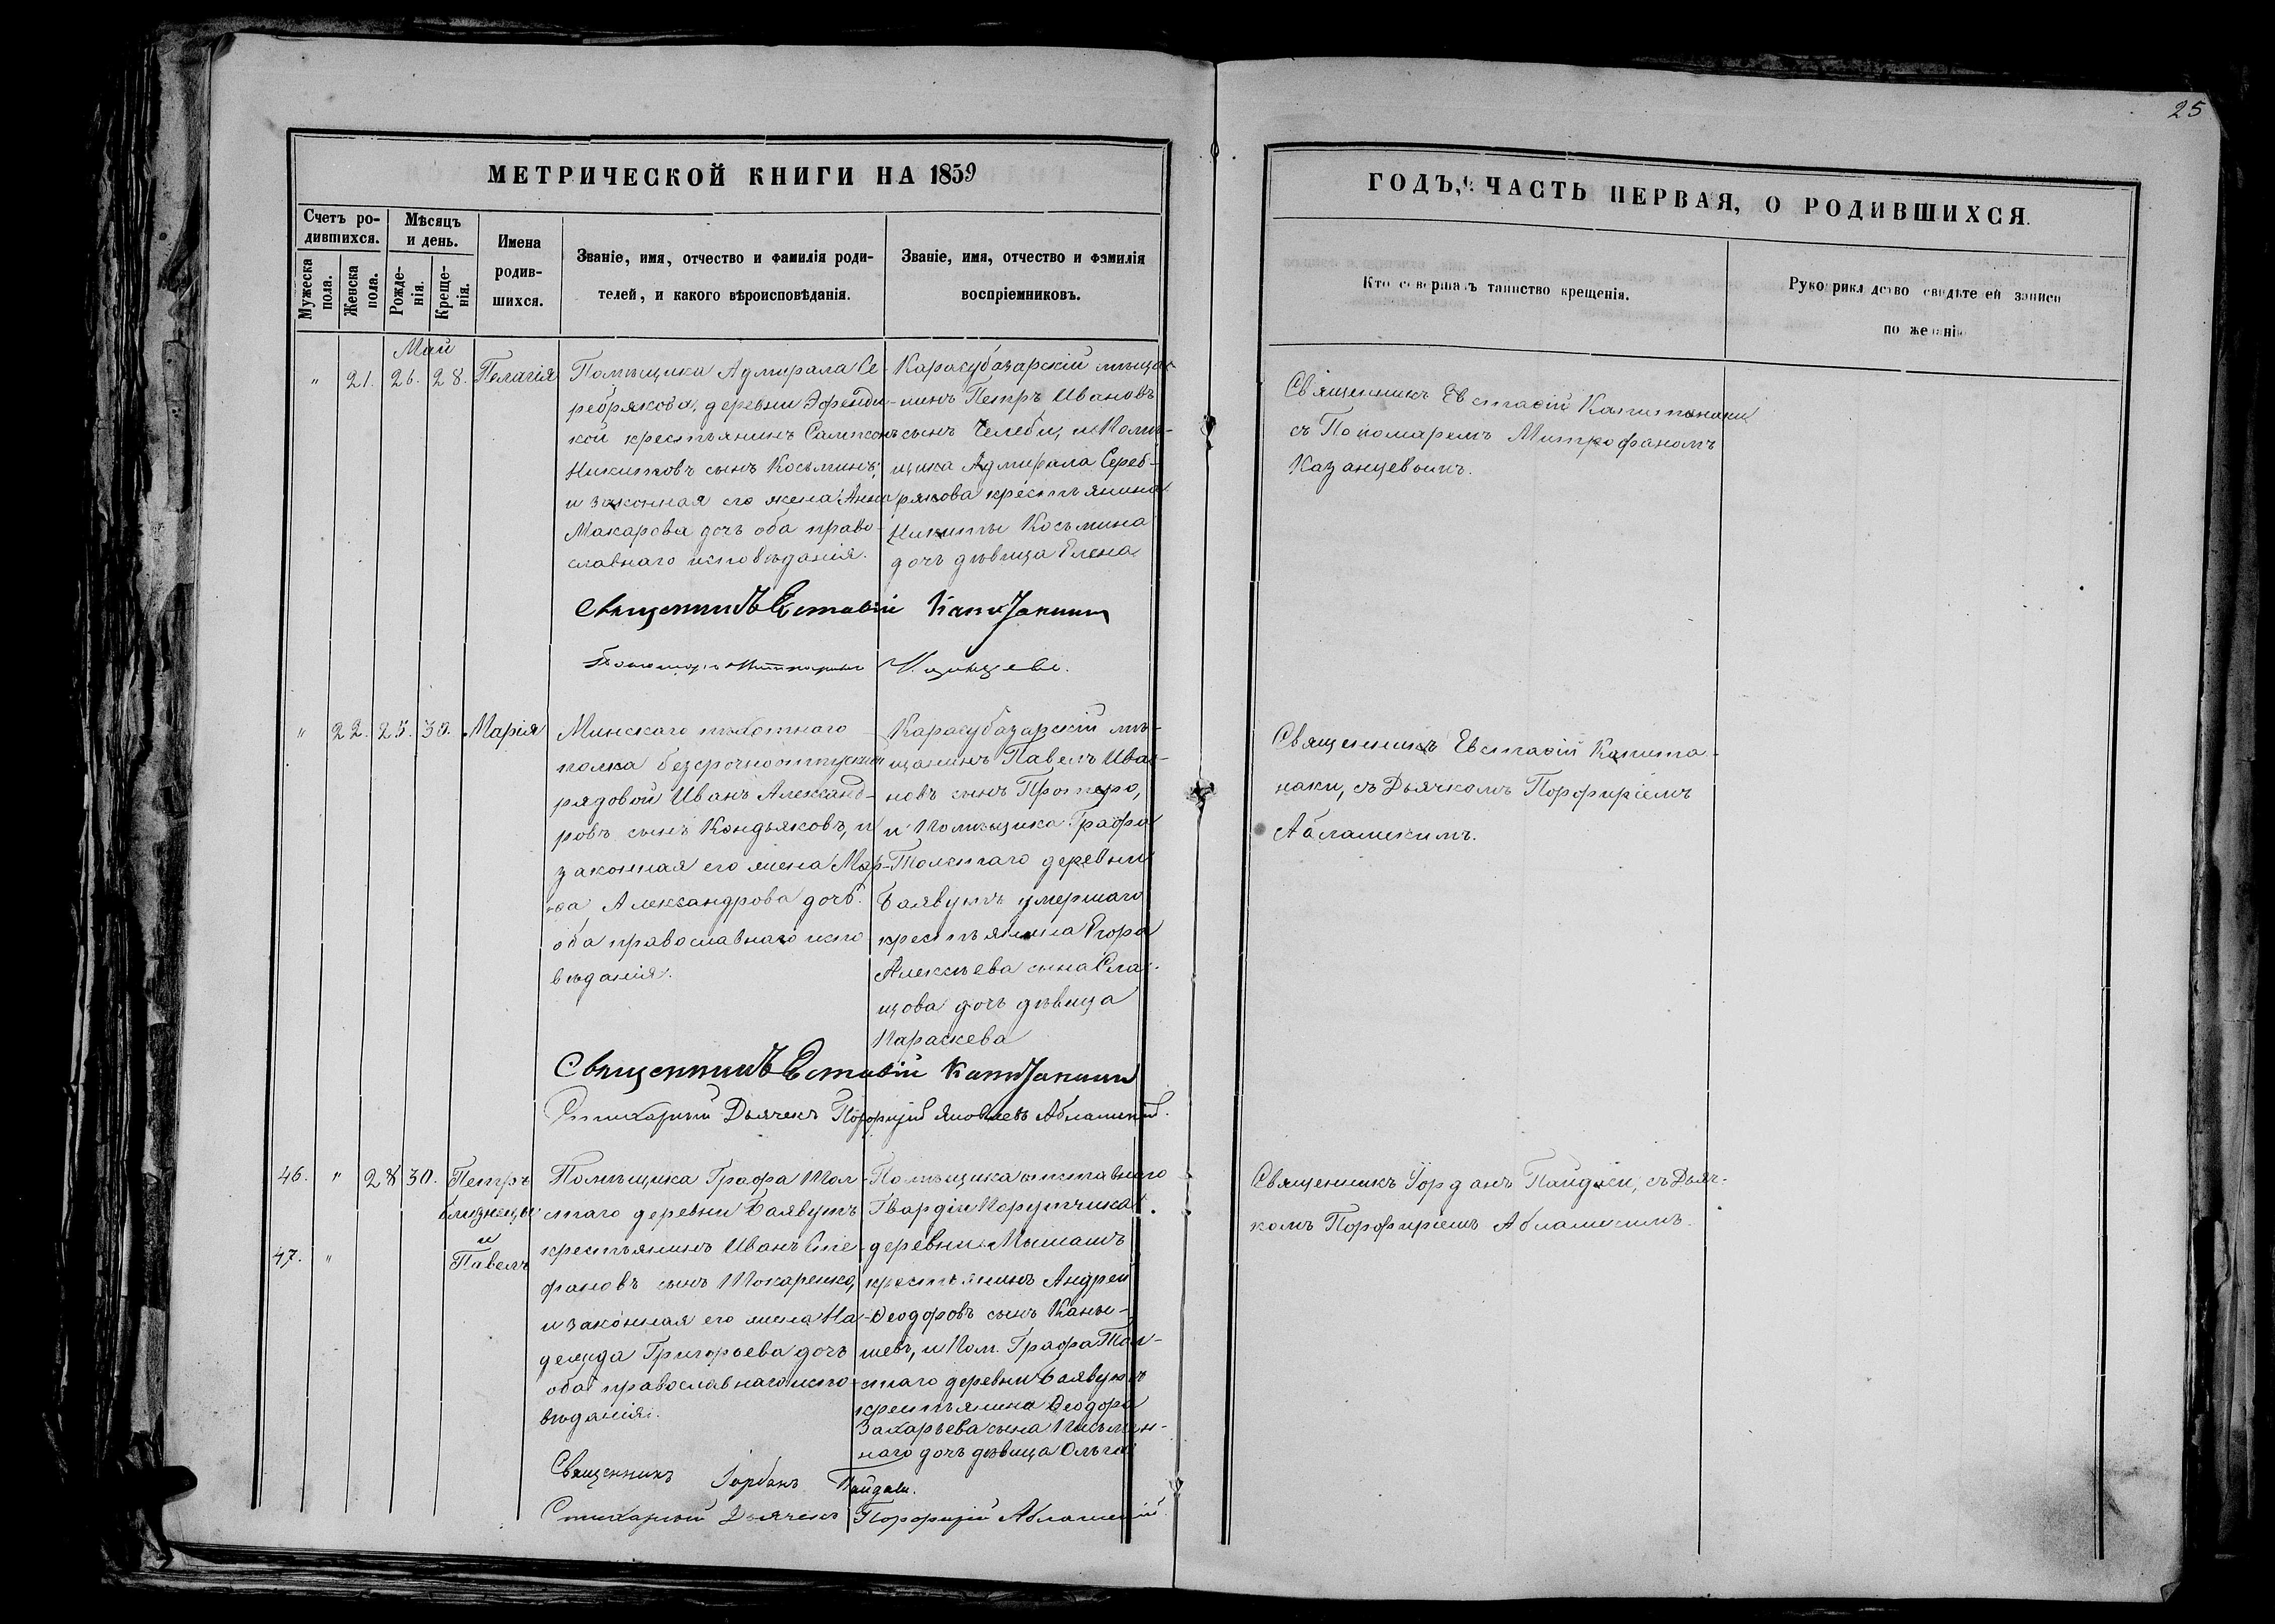 25
МЕТРИЧЕСКОЙ КНИГИ НА 1859
Счетъ ро-
дившихся.
Мужеска
пола.
Женска
пола.
Мѣсяцъ
и день.
Рожде-
нія.
Креще-
нія.
Имена
родив-
шихся.
Званіе, имя, отчество и фамилія роди-
телей, и какого вѣроисповѣданія.
Званіе, имя, отчество и фамилія
воспріемниковъ.
ГОДЪ, ЧАСТЬ ПЕРВАЯ, О РОДИВШИХСЯ.
Кто совершалъ таинство крещенія.
Рукоприкладство свидѣтелей записи
по желанію
Май
" 21. 26. 28. Пелагія
Помѣщика Адмирала Се-
ребрякова, деревни Эфенди-
кой крестьянинъ Сампсонъ
Никитовъ сынъ Косьминъ,
и законная его жена Анна
Макарова дочь оба право-
славнаго исповѣданія.
Карасубазарскій мѣща-
нинъ Петръ Ивановъ
сынъ Челеби, и Помѣ-
щика Адмирала Сереб-
рякова крестьянина
Никиты Косьмина
дочь дѣвица Елена
Священникъ Евстаѳій Капитанаки
съ Пономаремъ Митрофаномъ
Казанцевымъ.
Священникъ Евстаѳій Капитанаки
Пономарь Митрофанъ Казанцевъ.
" 22. 25. 30. Марія
Минскаго пѣхотнаго
полка безсрочноотпускн
рядовой Иванъ Александ-
ровъ сынъ Кондьяковъ, и
законная его жена Мар-
ѳа Александрова дочь
оба православнаго испо
вѣданія.
Карасубазарскій мѣ-
щанинъ Павелъ Ива-
новъ сынъ Протеро,
и Помѣщика Графа
Толстаго деревни
Баявутъ умершаго
крестьянина Егора
Алексѣева сына Сла-
щова дочь дѣвица
Параскева
Священникъ Евстаѳій Капита-
наки, съ Дьячкомъ Порфиріемъ
Абламскимъ.
Священникъ Евстаѳій Капитанаки
Стихарный Дьячекъ Порфирій Яковлевъ Абламскій.
46. " 28 30. Петръ
близнецы
и
47. " Павелъ
Помѣщика Графа Тол-
стаго деревни Баявутъ
крестьянинъ Иванъ Епи-
фановъ сынъ Токаренко,
и законная его жена На-
дежда Григорьева дочь
оба православнаго испо-
вѣданія.
Помѣщика отставнаго
Гвардіи Порутчика
деревни Мышашъ
крестьянинъ Андрей
Ѳеодоровъ сынъ Каны-
шевъ, и Пом. Графа Тол-
стаго деревни Баявутъ
крестьянина Ѳеодора
Захарьева сына Письмен-
наго дочь дѣвица Ольга
Священникъ Іорданъ Пайдаси, съ Дьяч-
комъ Порфиріемъ Абламскимъ.
Священникъ Іорданъ Пайдаси.
Стихарный Дьячекъ Порфирій Абламскій.